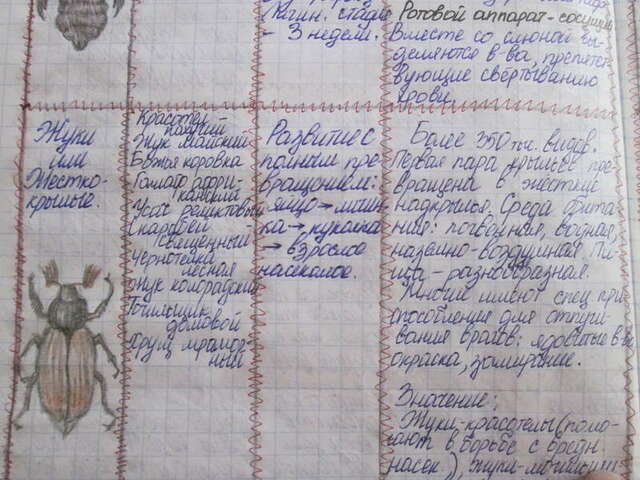 (Кигин. стадия
- 3 недели.
Ротовой аппарат - сосущий
Вместе со слюной вы-
деляются в-ва, препятст-
вующие свертыванию
крови.
Жуки
или
Жестко-
крылые.
Красотел
пахучий
Жук майский
Божья коровка
Усач
Скарабей
священный
Чернотелка
лесная
Жук колорадский
Точильщик
домовой
Хрущ мрамор-
ный
Развитие с
полным пре-
вращением:
яйцо → личин-
ка → куколка
→ взрослое
насекомое.
Более 350 тыс. видов.
Первая пара крыльев пре-
вращена в жесткие
надкрылья. Среда обита-
ния: почвенная, водная,
наземно-воздушная. Пи-
ща - разнообразная.
Многие имеют спец. при
способления для отпуги-
вания врагов: ядовитые в-ва
окраска, замирание.
Значение:
Жуки-красотелы (помо-
гают в борьбе с вредн.
насек.), жуки-могильщи